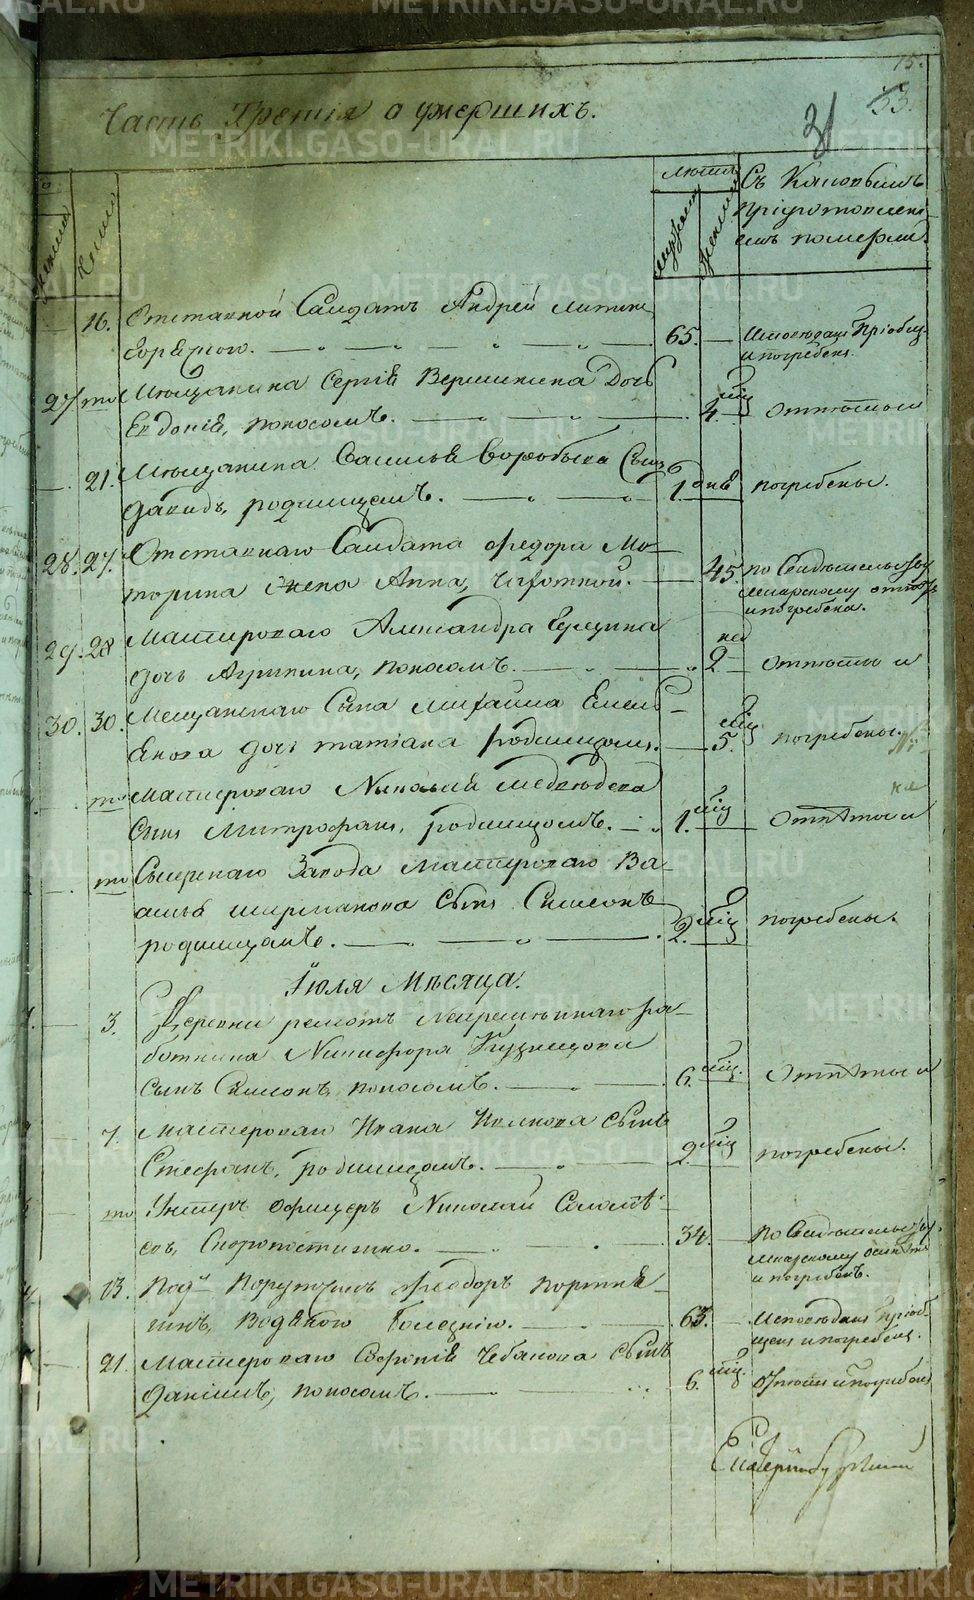 15.
Часть Третія о умершихъ.
31 53.
лѣта
Съ Каковымъ
мужеска женска
пріуготовлені
емъ померли.
16. Отставной Салдатъ Андрей Литин
горѣчкою. 65. Исповѣданъ пріобщ
и погребенъ.
27 то Мѣщанина Сергія Вершинина Дочь
Евдокія, поносомъ. 4 мѣц отпѣты и
21. Мѣщанина Василья Воробьева Сынъ
Давидъ, родимцемъ. 1 днѣ погребены.
28. 27. Отставнаго Салдата Федора Мо
торина Жена Анна, Чахоткой. 45. по Свидѣтельству
лекарскому отпѣта
и погребена.
29. 28 Мастероваго Александра
дочь Агрипина, поносомъ. 2 нед отпѣты и
30. 30. Мещанскаго Сына Михаила Емель
янова дочь татіана родимцемъ. 5. мѣц погребены.
то Мастероваго Николая Медвѣдева
Сынъ Митрофанъ, родимцомъ. 1. мѣц Отпѣты и
то Сысерскаго Завода Мастероваго Ва
силья Ширманова Сынъ Симеонъ
родимцомъ. 2. мѣц погребены.
Іюля Мѣсяца.
3. Деревни решотъ Непремѣннаго ра
ботника Никифора Кузнецова
сынъ Симеонъ, поносомъ. 6. мѣц. Отпѣты и
7. Мастероваго Ивана сынъ
Стефанъ, родимцомъ. 2. мѣц погребены.
то Унтеръ офицеръ Николай Соломѣ
евъ, Скоропостижно. 34. по Свидѣтельству
лекарскому отпѣтъ
и погребенъ.
13. Подъ Порутчикъ Феодоръ Портня
гинъ, Водяною болезнію. 63. Исповѣданъ пріоб
щенъ и погребенъ.
21. Мастероваго Чебакова сынъ
Даніилъ, поносомъ. 6. мѣц. отпѣтъ и погребенъ
METRIKI.GASO-URAL.RU